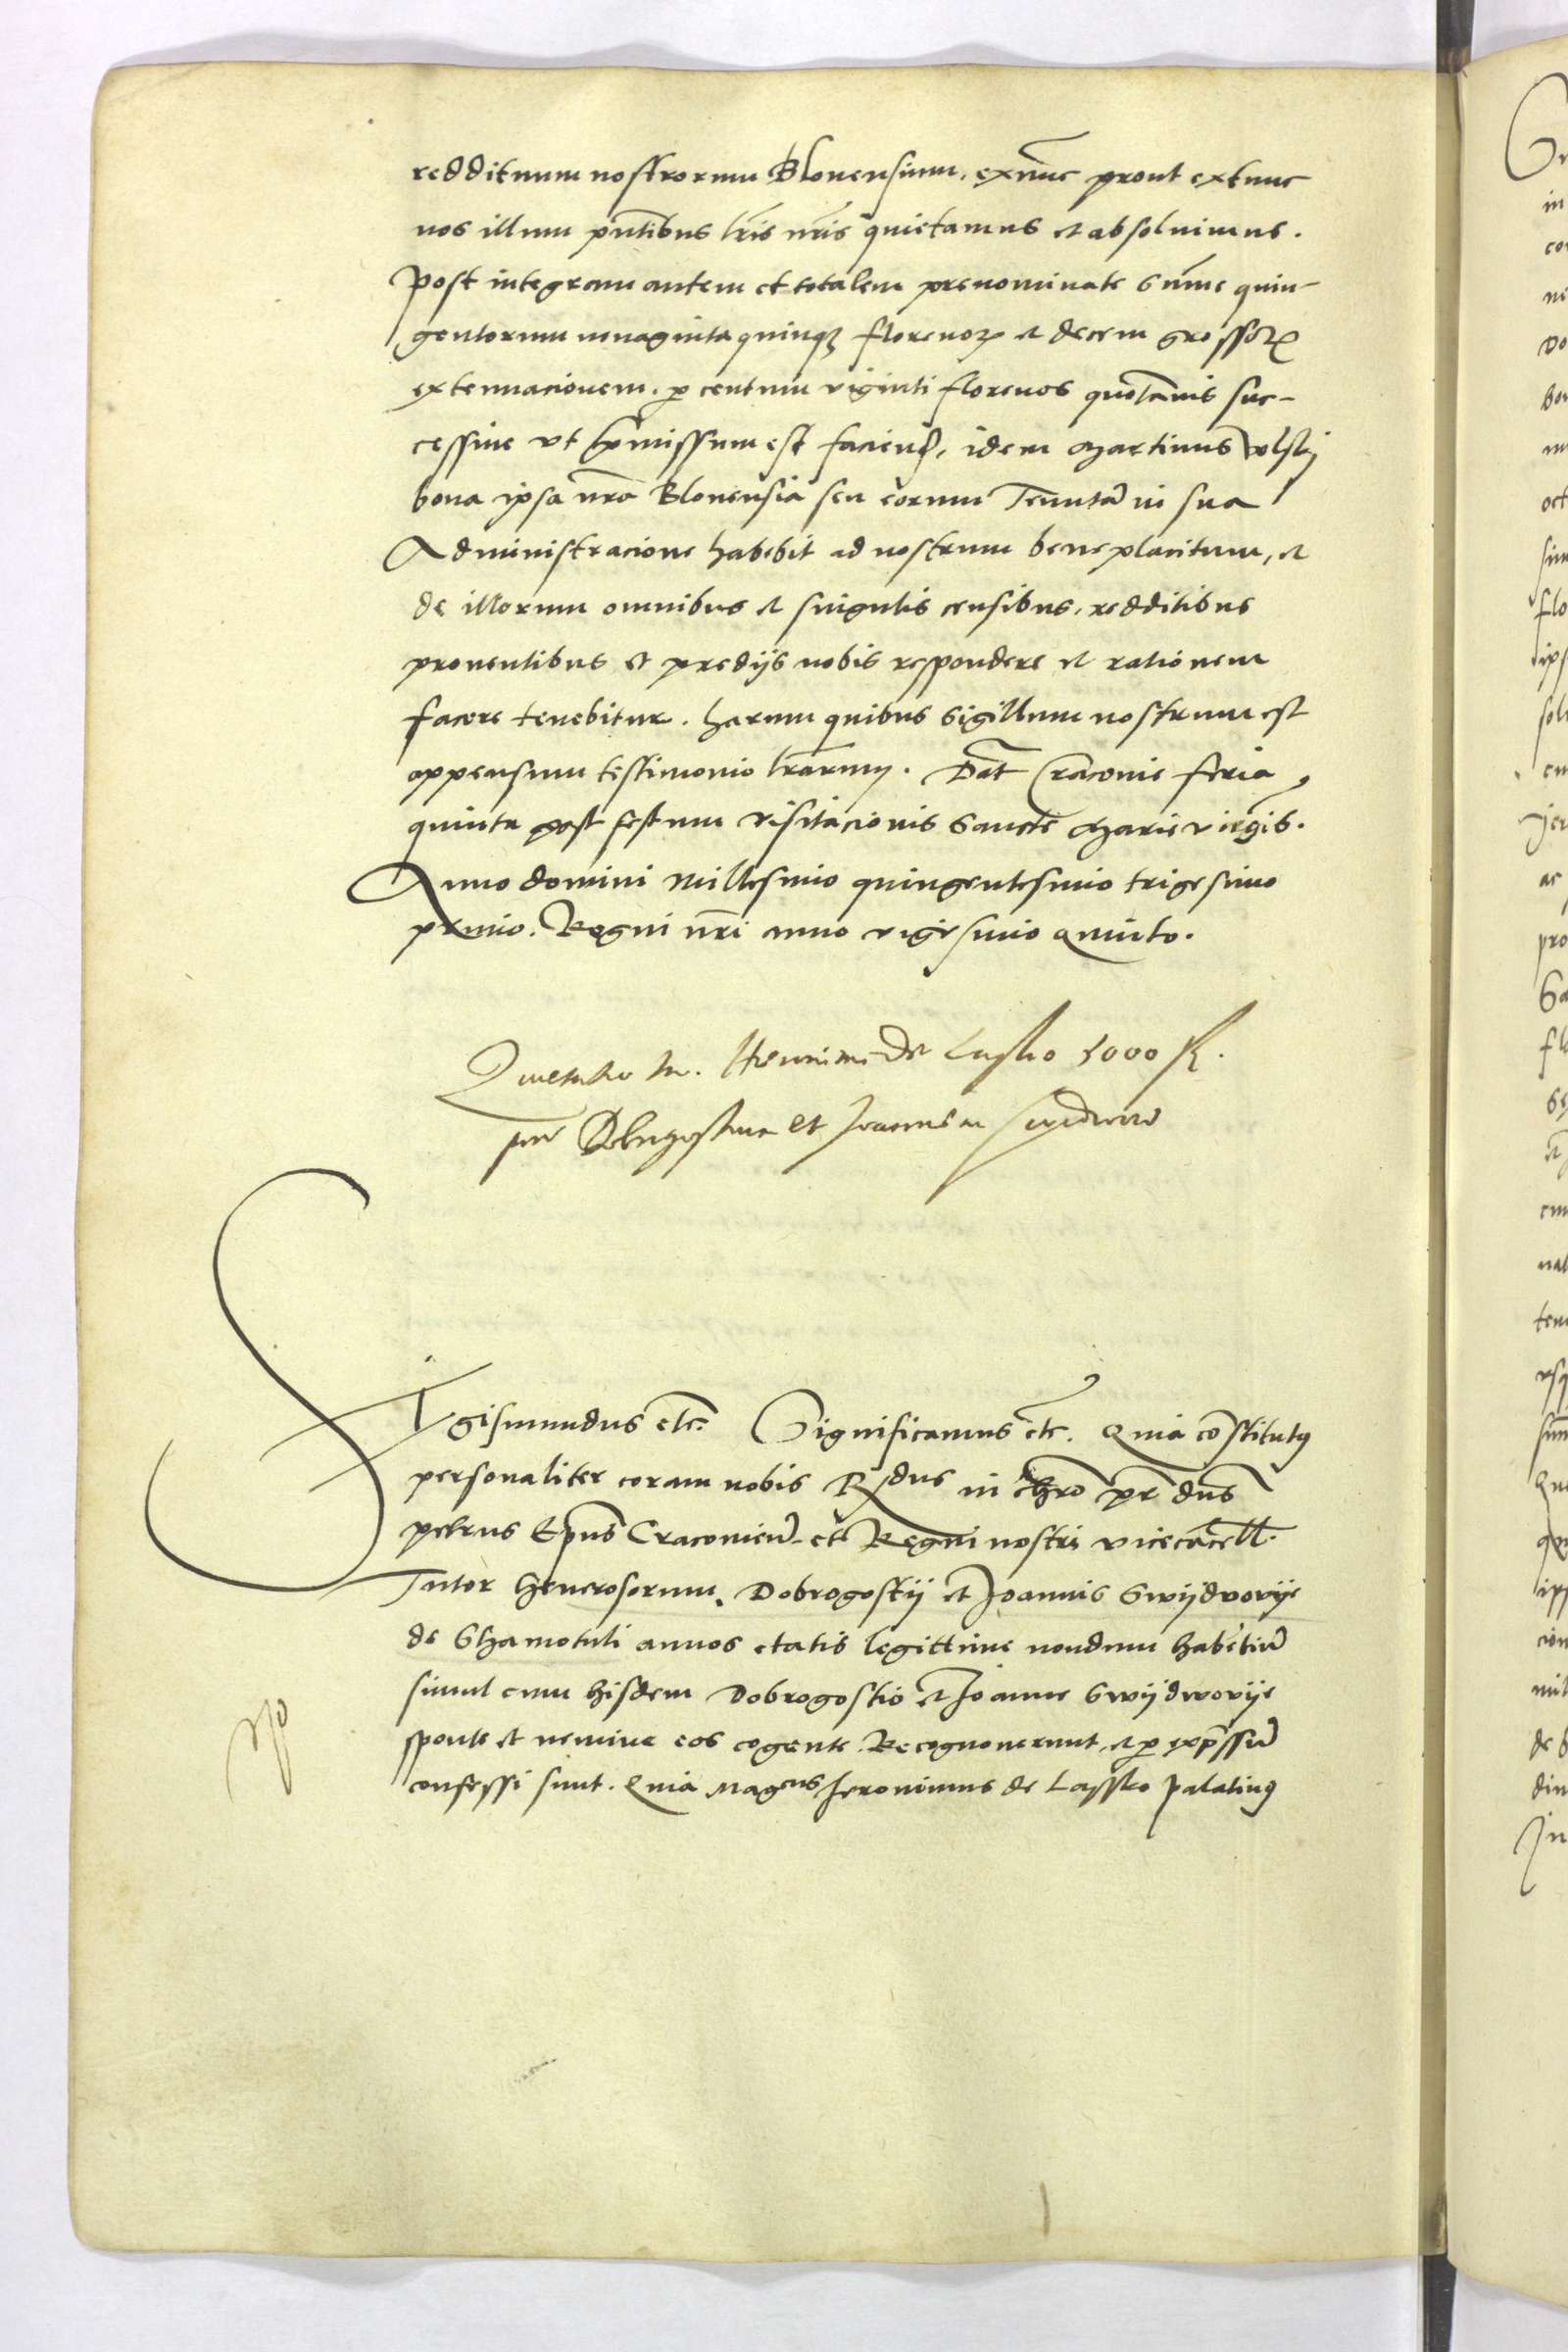 reddituum nostrorum Blonensium, exnunc prout extunc
nos illum pntibus lris nris quietamus et absolvimus.
Post integram autem et totalem prenominate summe quin-
gentorum nonaginta quinq florenoꝝ et decem grossoꝝ
extenuacionem, p centum viginti florenos quotannis suc-
cessive ut pmissum est faciend, idem Martinus Wolski
bona ipsa nra Blonensia seu eorum Tenutam in sua
Administracione habebit ad nostrum beneplacitum, et
de illorum omnibus et singulis censibus, redditibus
proventibus et predijs nobis respondere et rationem
facere tenebitur. harum quibus Sigillum nostrum est
appensum testimonio lrarum. Dat Cracovie feria
quinta post festum visitacionis Sancte Marie virginis.
Anno domini Millesimo quingentesimo trigesimo
primo. Regni nri anno vigesimo quinto.
Quietatio m. Hieronimi de Lasko 5000 fl.
per Dobrogostium et Joannem
Sigismundus etc. Significamus etc. Quia constitutus
personaliter coram nobis Rndus in chro pr dns
petrus Epus Cracovien et Regni nostri vicecancell.
Tutor Generosorum. Dobrogostij et Joannis Swijdwovije
de Shamotuli annos etatis legittime nondum habentium
simul cum hisdem Dobrogostio et Joanne Swijdwovije
sponte et nemine eos cogente. Recognoverunt, et p expressum
confessi sunt. Quia Magcus Jeronimus de Lassko palatinus